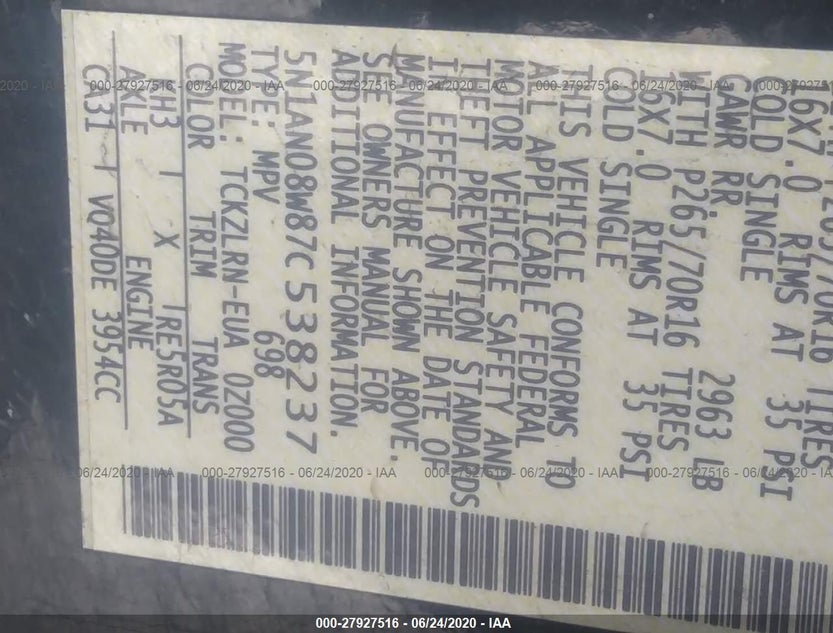 P265/70R16 TIRES
16X7.0 RIMS AT 35 PSI
COLD SINGLE
GAWR RR. 2963 LB
WITH P265/70R16 TIRES
16X7.0 RIMS AT 35 PSI
COLD SINGLE
THIS VEHICLE CONFORMS TO
ALL APPLICABLE FEDERAL
MOTOR VEHICLE SAFETY AND
THEFT PREVENTION STANDARDS
IN EFFECT ON THE DATE OF
MANUFACTURE SHOWN ABOVE.
SEE OWNERS MANUAL FOR
ADDITIONAL INFORMATION.
5N1AN08W87C538237
TYPE: MPV 698
MODEL: TCKZLRN-EUA 0Z000
COLOR TRIM TRANS
KH3 I X RE5R05A
AXLE ENGINE
CA31 VQ40DE 3954CC
000-27927516 - 06/24/2020 - IAA